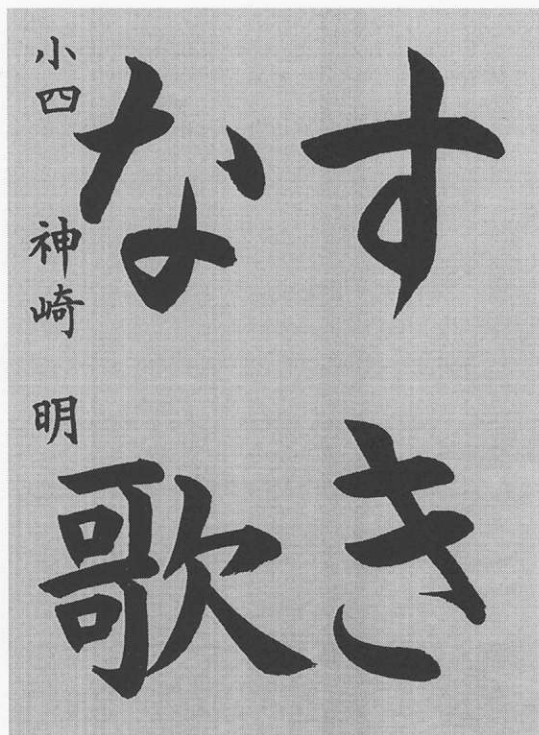 すき
な歌
小四 神崎 明